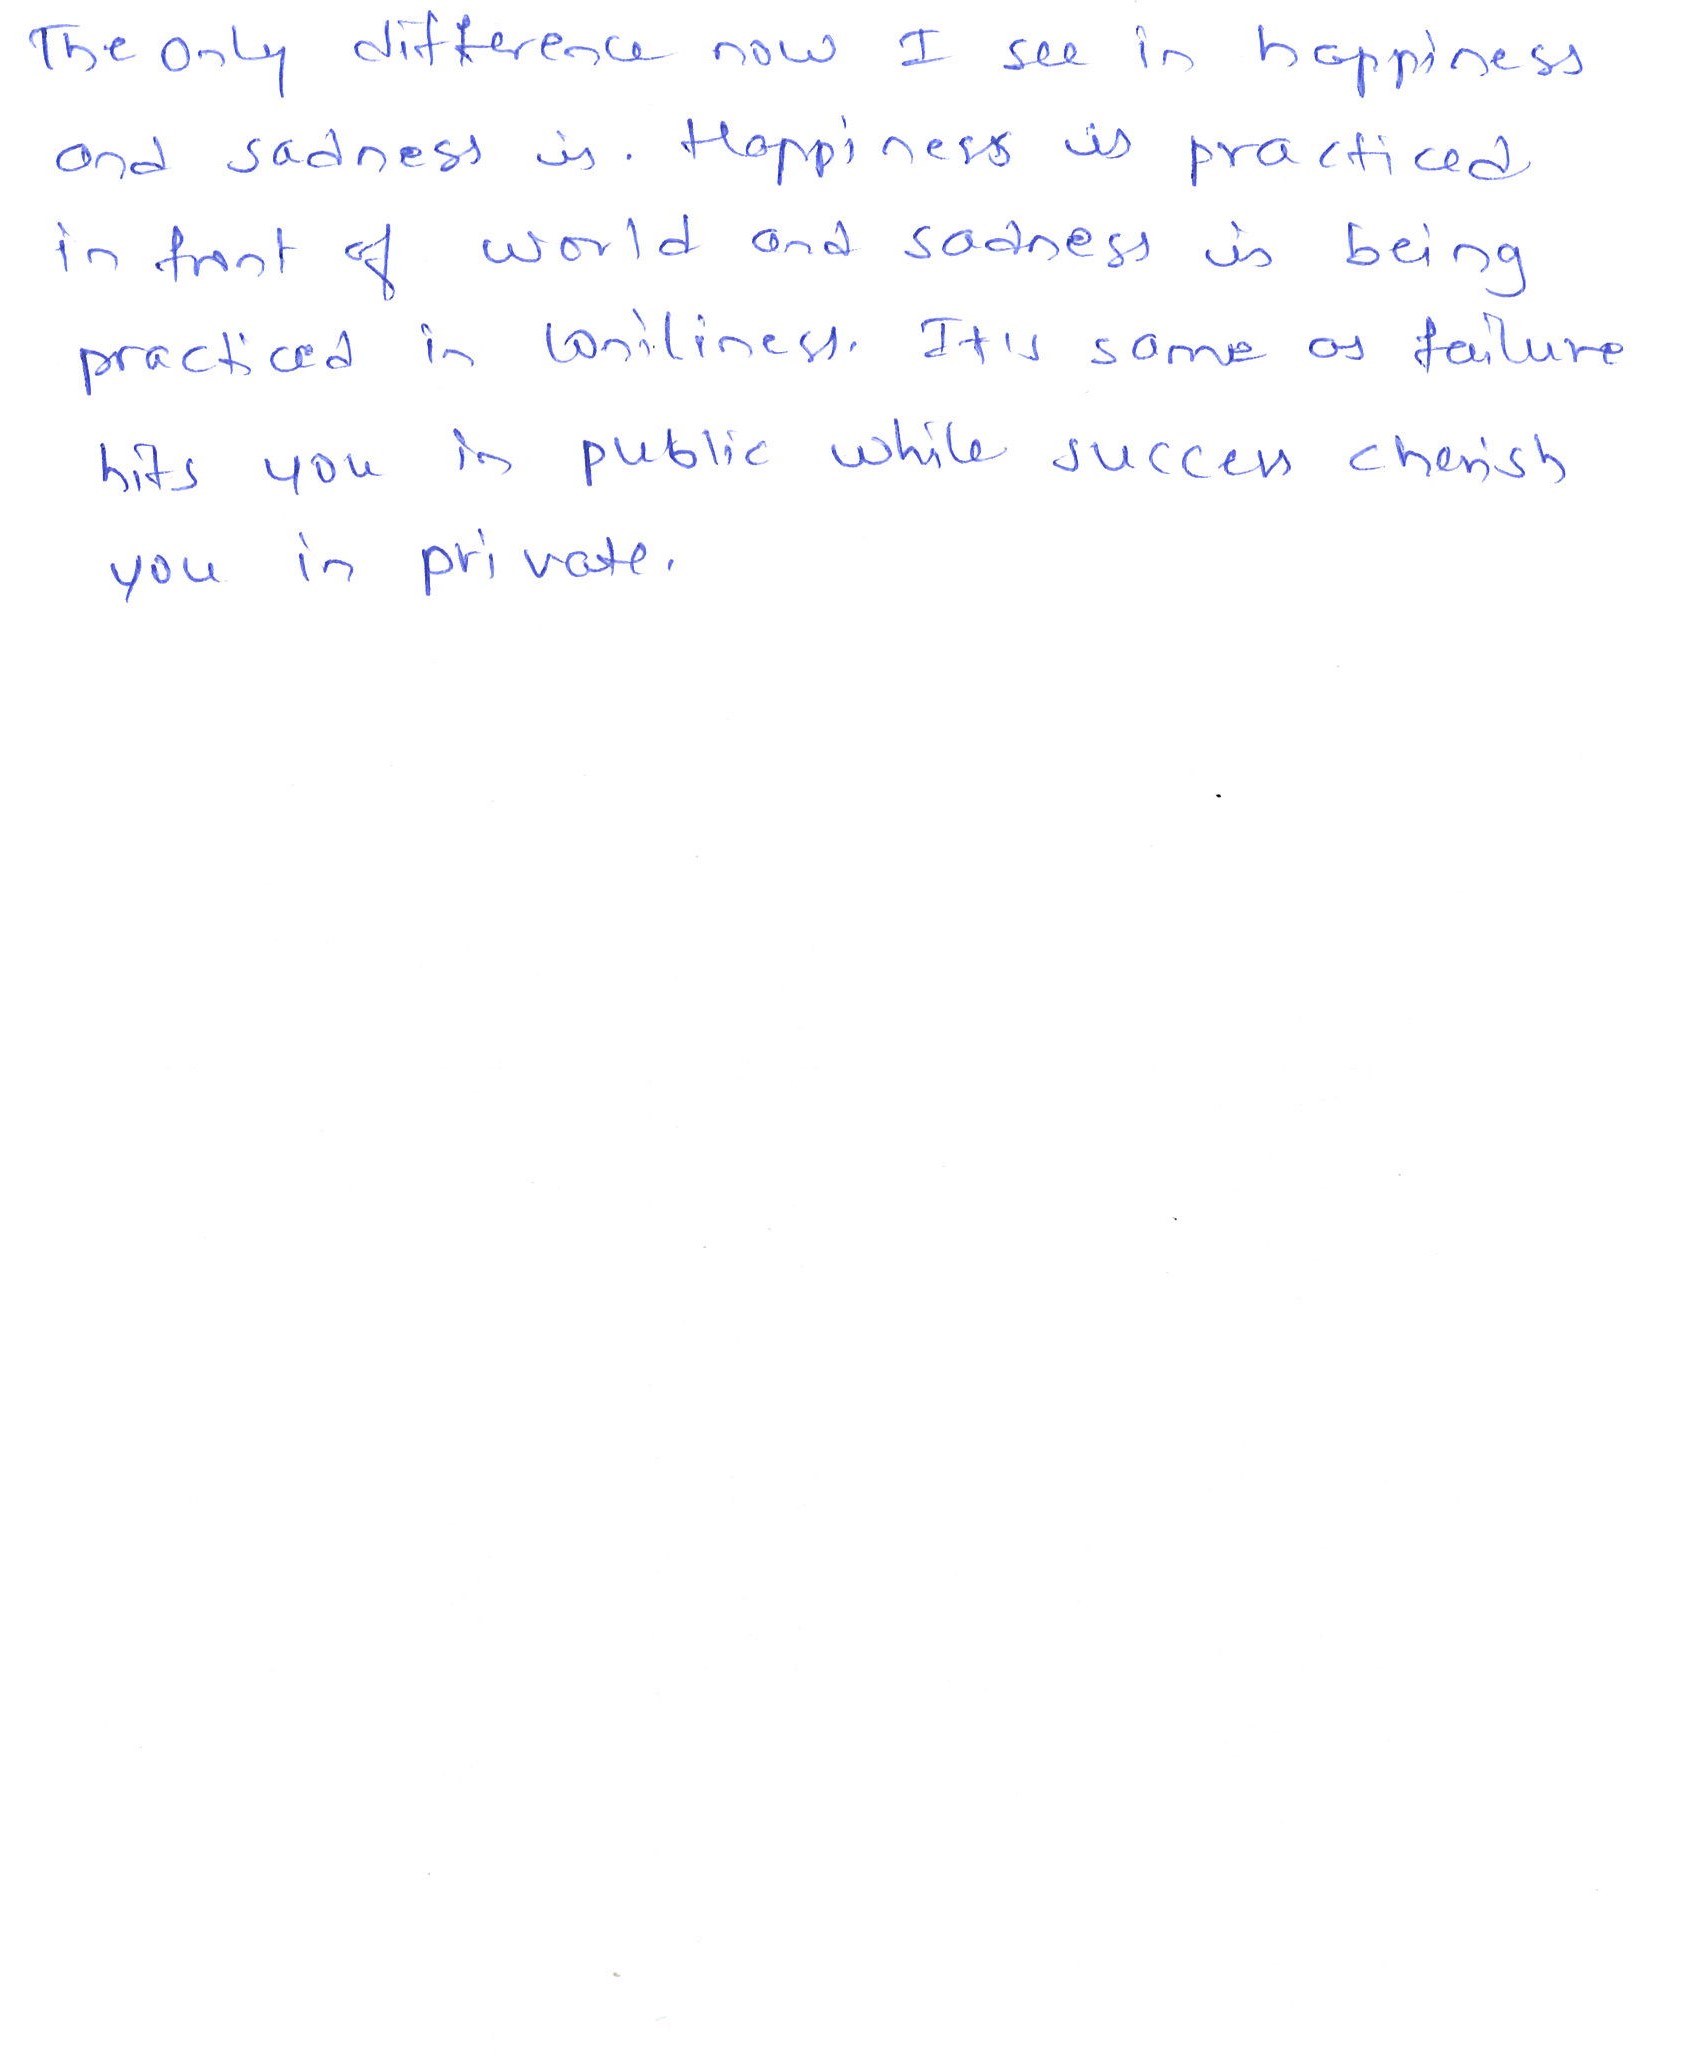 The only difference now I see in happiness
and sadness is. Happiness is practiced
in front of world and sadness is being
practiced in loniliness. It's same as failure
hits you in public while success cherish
you in private.